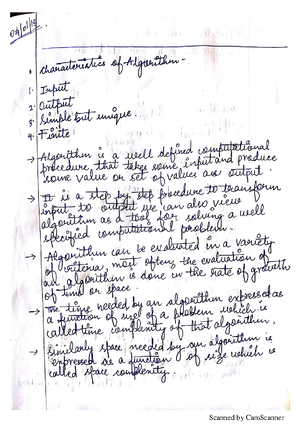 04/01/19
Characteristics of Algorithm -
1. Input
2. Output
3. Simple but unique.
4. Finite
→ Algorithm is a well defined computational
procedure, that takes some input and produce
some value or set of values as output.
→ It is a step by step procedure to transform
input to output we can also view
algorithm as a tool for solving a well
specified computational problem.
→ Algorithm can be evaluated in a variety
of criteria, most often the evaluation of
an algorithm is done in the rate of growth
of time or space.
→ The time needed by an algorithm expressed as
a function of size of a problem which is
called time complexity of that algorithm.
→ Similarly space needed by an algorithm is
expressed as a function of size which is
called space complexity.
Scanned by CamScanner